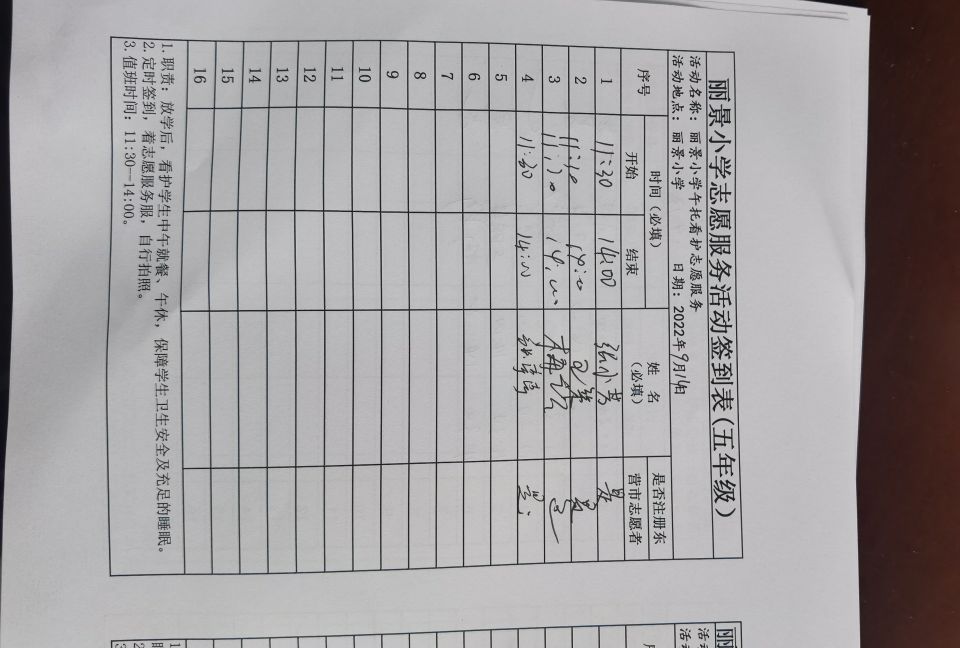 丽景小学志愿服务活动签到表（五年级）
活动名称：丽景小学午托看护志愿服务
活动地点：丽景小学 日期：2022年9月14日
序号 时间（必填） 姓名（必填） 是否注册东营市志愿者
开始 结束
1 11:30 14:00 张小芳 是
2 11:10 14:00 是
3 11:20 14:00 是
4 11:30 14:00 是
5
6
7
8
9
10
11
12
13
14
15
16
1. 职责：放学后，看护学生中午就餐、午休，保障学生卫生安全及充足的睡眠。
2. 定时签到，着志愿服务服，自行拍照。
3. 值班时间：11:30--14:00。